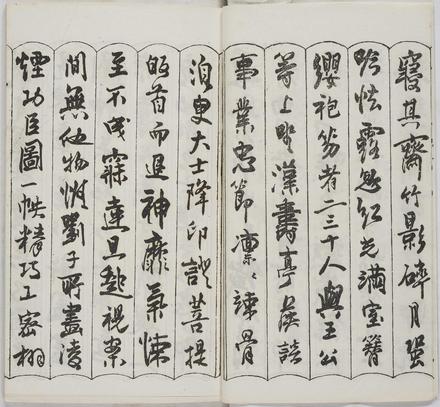 寢其齋竹影碎月蛩
吟怯露忽紅光滿室簪
纓袍笏者二三十人與王公
等上坐漢壽亭侯談
事業忠節凛〻骨
須臾大士降印證菩提
皈首而退神靡氣悚
至不成寐達旦趨視案
間無他物惟劉子所畫凌
煙功臣圖一帙精巧工密栩